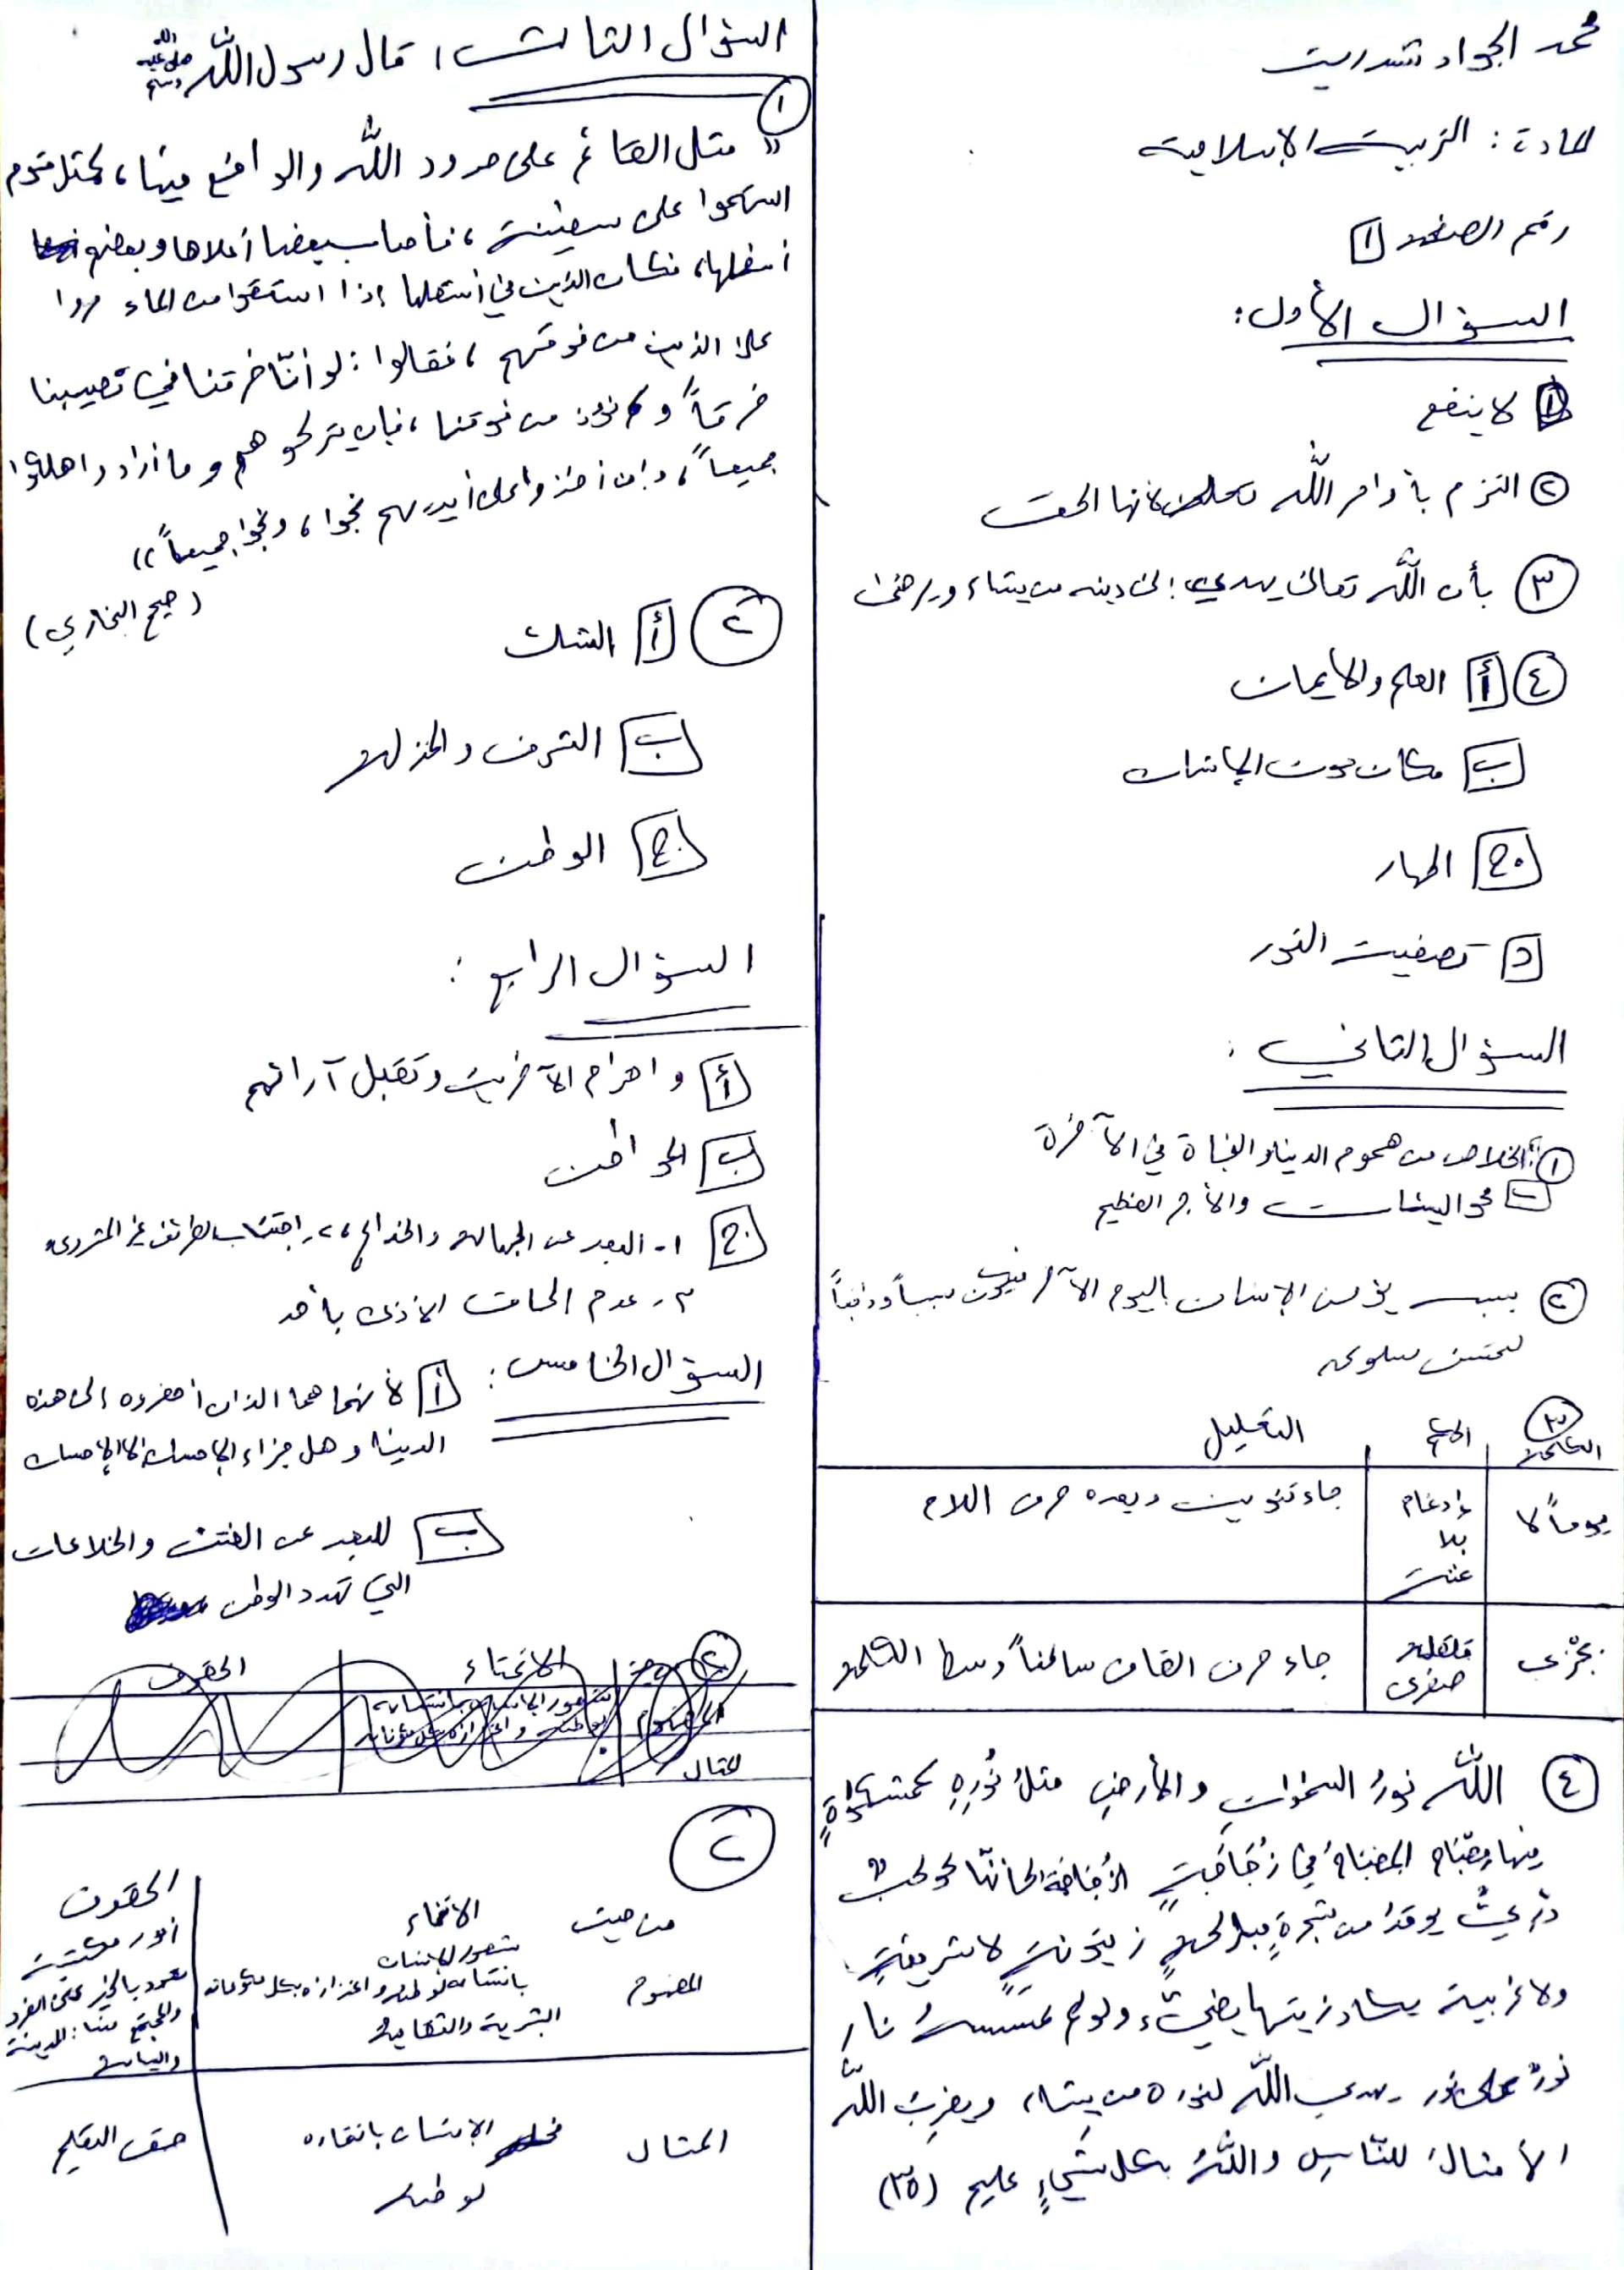 محمد الجواد تتدريت
المادة: التربية الإسلامية
رقم الصفحة ١
السؤال الأول:
١ لا ينفع
٢ التزم بأوامر الله لأنها الحق
٣ بأن الله تعالى يهدي إلى دينه من يشاء ويرضى
٤ أ العلم والإيمان
ب مكان موت الإنسان
ج المهار
د تصفيت النور
السؤال الثاني:
١ أ الخلاص من هموم الدينا والنجاة في الآخرة
ب محو السيئات والأجر العظيم
٢ بسبب يؤمن الإنسان باليوم الآخر فيكون سبباً ودافعاً
لتحسن سلوكه
٣
الكلمة الحكم التعليل
يوماً لا إدغام بلا غنة جاء تنوين وبعده حرف اللام
نجزي قلقلة صغرى جاء حرف القاف ساكناً وسط الكلمة
٤ الله نورُ السموات والأرضِ مثلُ نُورِهِ كمشكوةٍ
فيها مِصْبَاح المِصْبَاحُ في زُجَاجَةٍ الزُجَاجَةُ كأنّها كوكبٌ
دُرّيٌّ يوقدُ من شجرةٍ مباركةٍ زيتونةٍ لا شرقيةٍ
ولا غربية يكاد زيتها يضيء ولو لم تمسسهُ نار
نورٌ على نور يهدي الله لنوره من يشاء ويضربُ اللهُ
الأمثالَ للنّاسِ واللهُ بكل شيءٍ عليم (٣٥)
السؤال الثالث، قال رسول الله ﷺ
١
"مثل القائم على حدود الله والواقع فيها، كمثل قوم
استهموا على سفينة، فأصاب بعضها أعلاها وبعضهم
أسفلها، فكان الذين في أسفلها إذا استقوا من الماء مروا
على الذين من فوقهم، فقالوا: لو أنّا خرقنا في نصيبنا
خرقاً و نؤذ من فوقنا، فإن يتركوهم وما أرادوا هلكوا
جميعاً، وإن أخذوا على أيديهم نجوا، ونجوا جميعاً"
(صحيح البخاري)
٢ أ الشك
ب الشرف والمنزلة
ج الوطن
السؤال الرابع:
أ واحترام الآخرين وتقبل آرائهم
ب المواطن
ج ١- البعد عن الجهالة والخداع ٢- اجتناب الطرائق غير المشروعة
٣- عدم إلحاق الأذى بأحد
السؤال الخامس: أ لأنهما هما الذان أحضروه إلى هذه
الدينا وهل جزاء الإحسان إلا الإحسان
ب للبعد عن الفتن والخلاعات
التي تهدد الوطن
٢
من حيث الانتماء الحقوق
المفهوم شعور الإنسان بانتمائه لوطنه واعتزازه بكل مكوناته البشرية والثقافية أمور مكتسبة تعود بالخير على الفرد والمجتمع منها: المدينة والسياسية
المثال الإنسان بانتمائه لوطنه حق التعليم